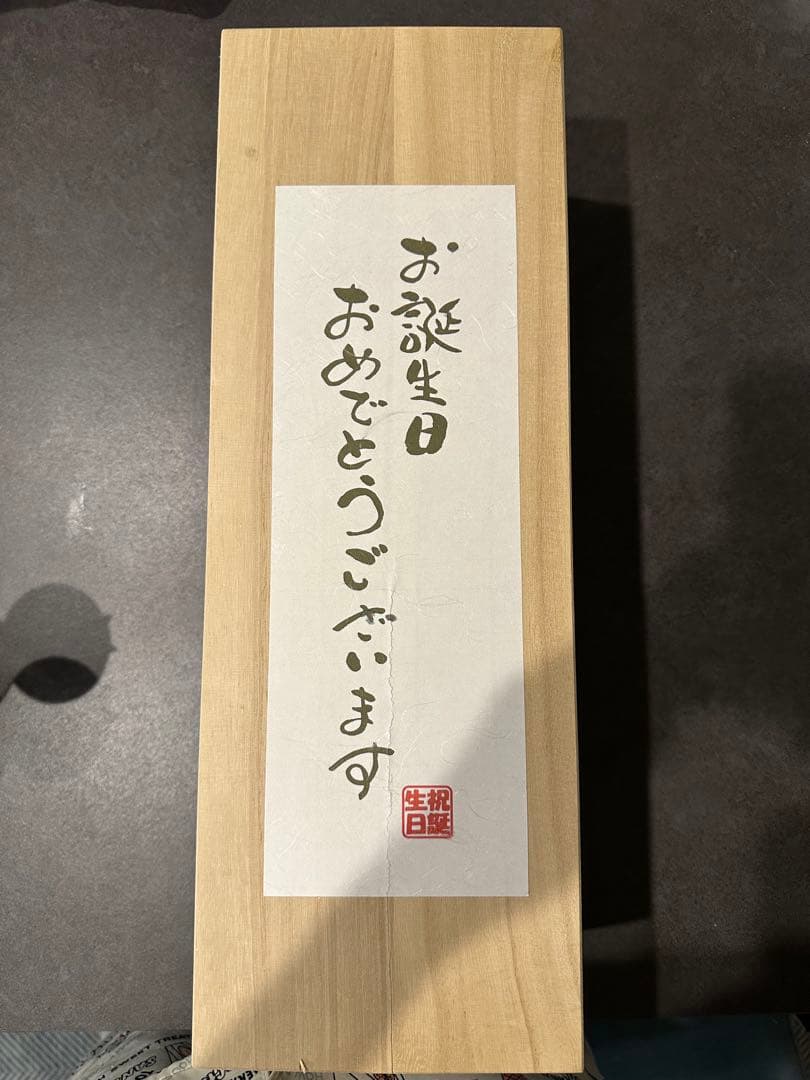 お誕生日
おめでとうございます
祝誕
生日
SWEET TREAT